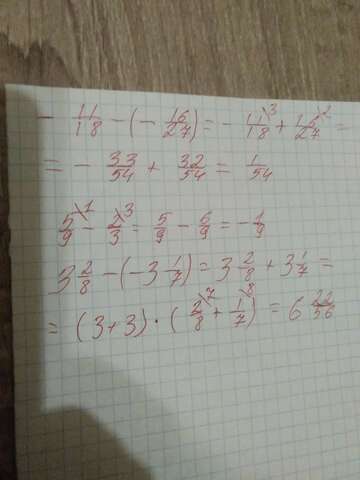 - 11/18 - (- 16/27) = - 11/18 \3 + 16/27 \2 =
= - 33/54 + 32/54 = 1/54
5/9 \1 - 2/3 \3 = 5/9 - 6/9 = - 1/9
3 2/8 - (-3 1/7) = 3 2/8 + 3 1/7 =
= (3+3) · (2/8 \7 + 1/7 \8) = 6 22/56